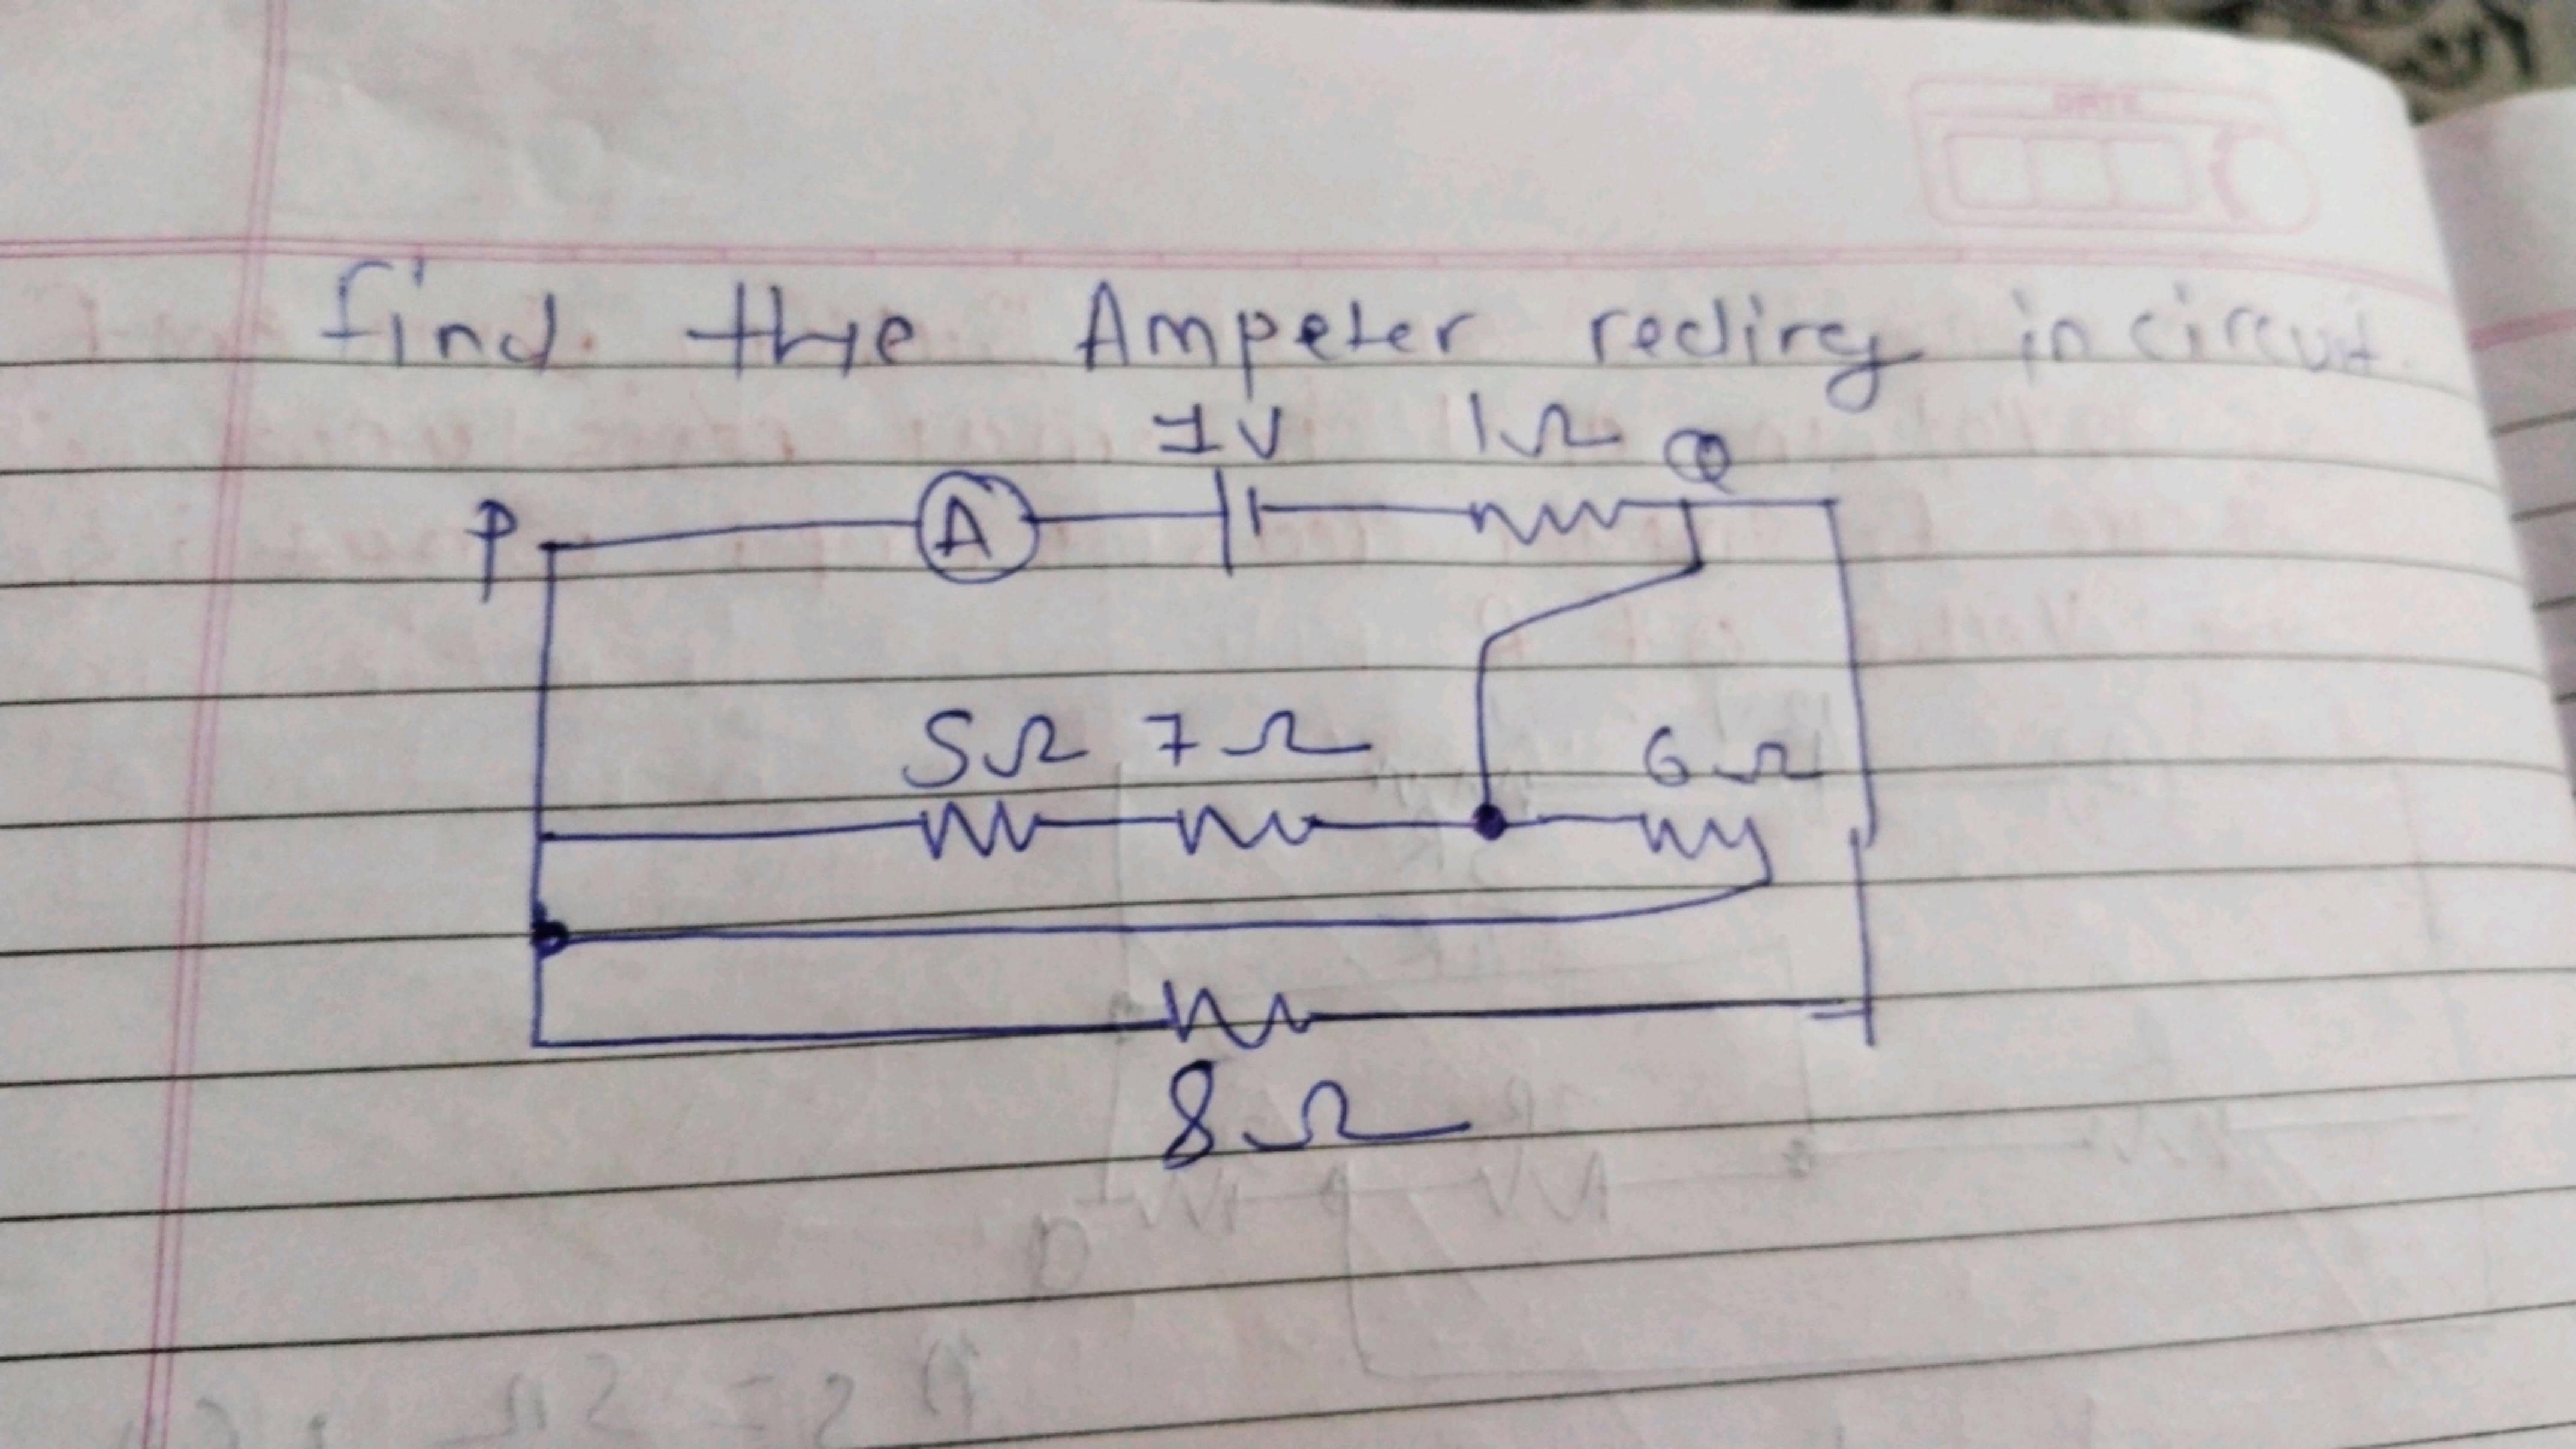 find. the Ampeter redireg in circuit.
1V 1Ω Q
P A
5Ω 7Ω 6Ω
8Ω
DATE